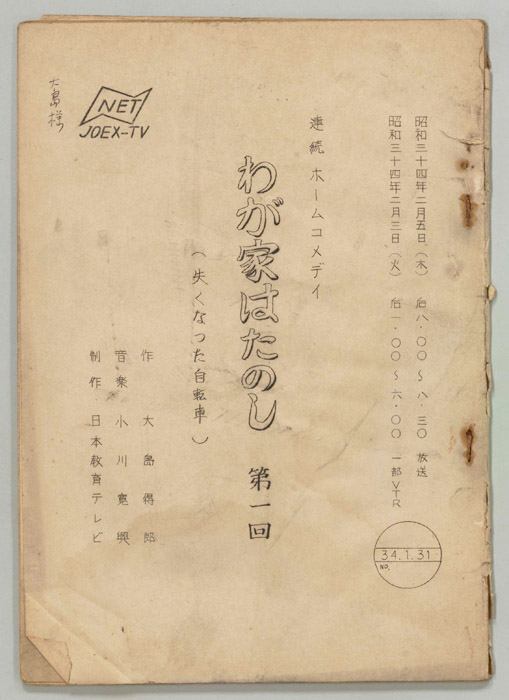 昭和三十四年二月五日（木）后八・００～八・三０放送
昭和三十四年二月三日（火）后一・００～六・００一部VTR
連続ホームコメデイ
わが家はたのし 第一回
（失くなった自転車）
作 大島得郎
音楽 小川寛興
制作 日本教育テレビ
NET
JOEX-TV
大島様
34.1.31
NO.